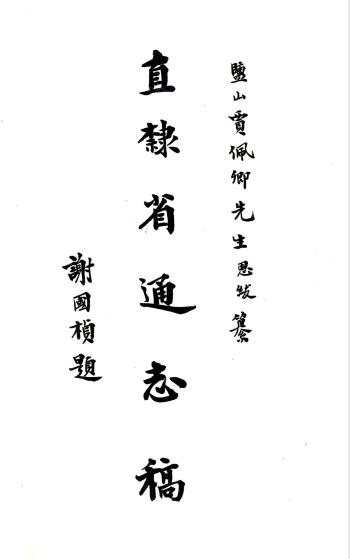 鹽山賈佩卿先生恩紱纂
直隸省通志稿
謝國楨題